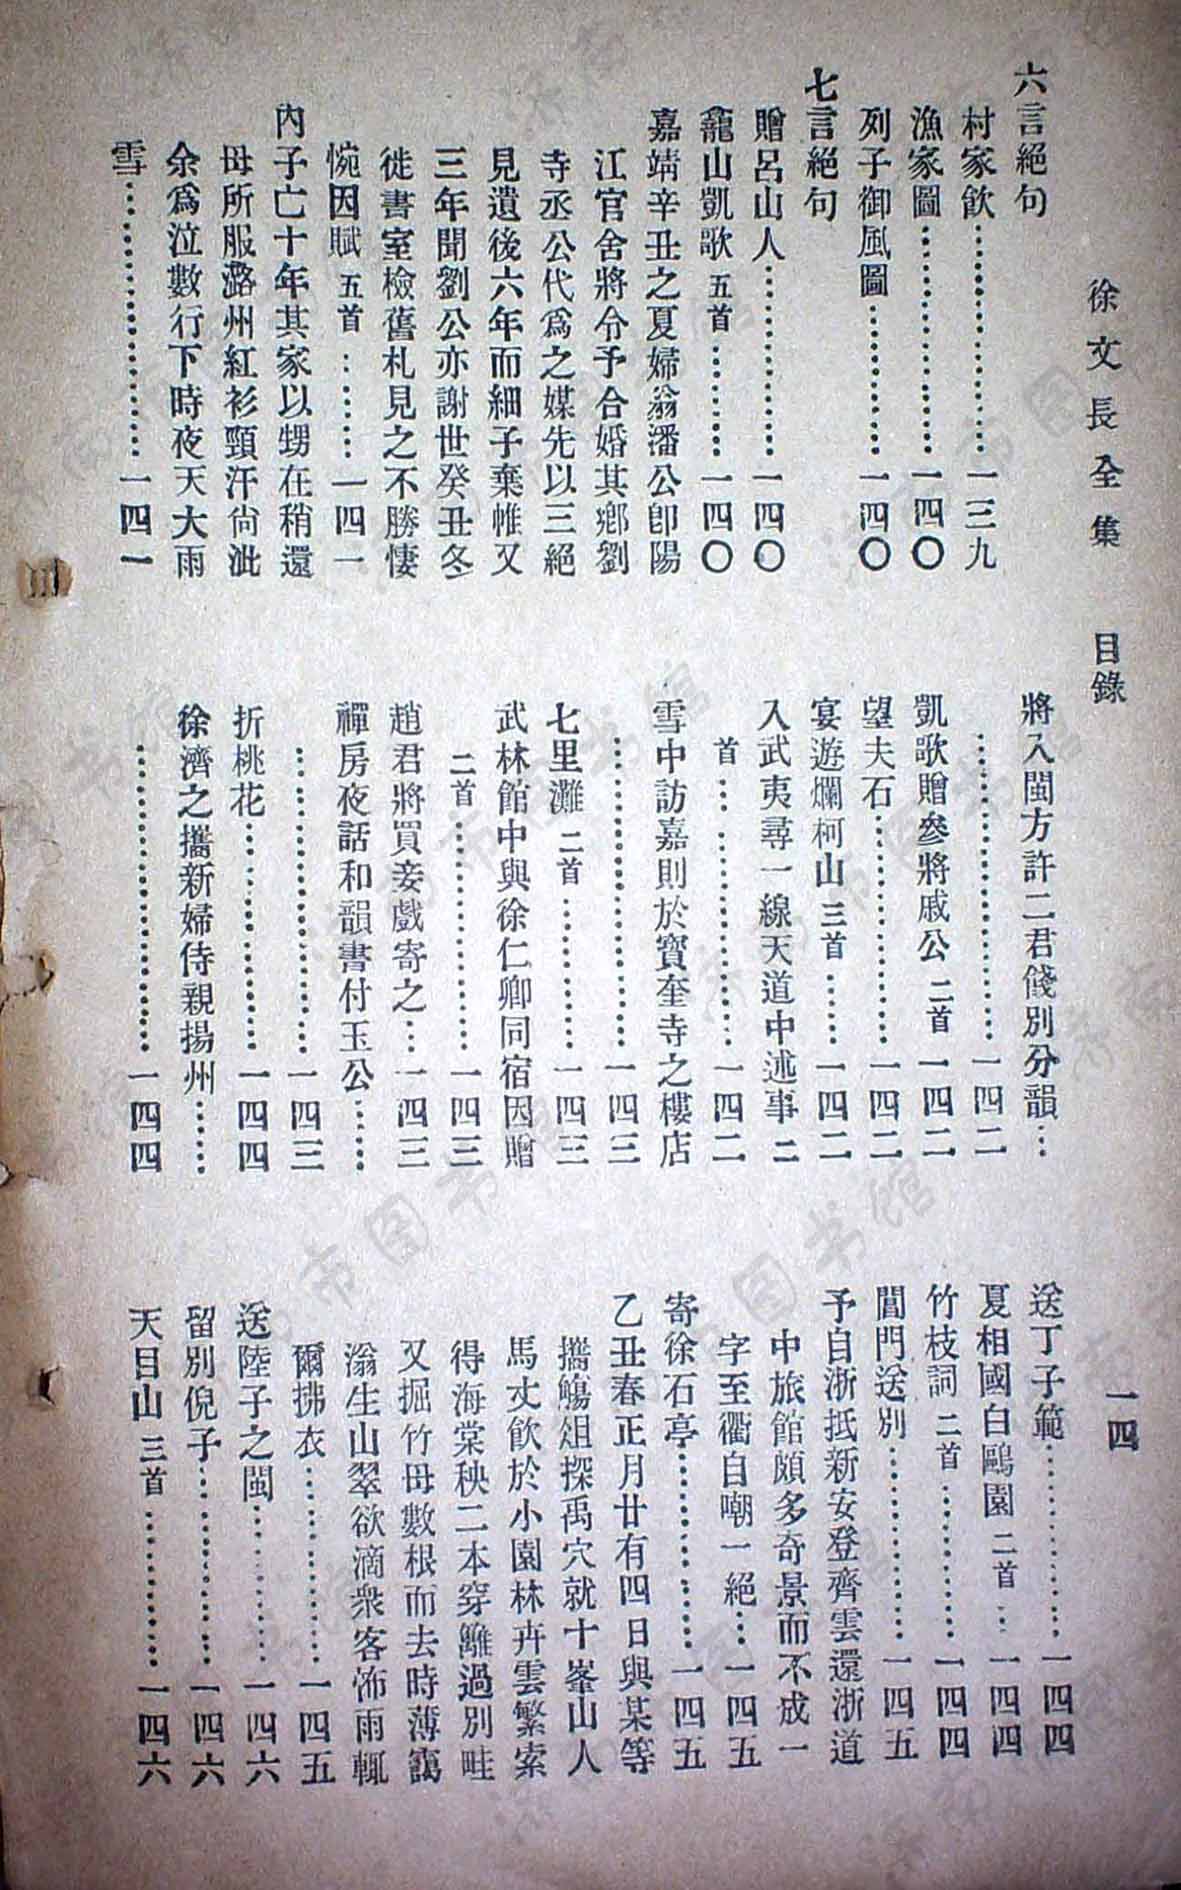 徐文長全集　目錄
一四
六言絕句
村家飲……………一三九
漁家圖……………一四〇
列子御風圖……………一四〇
七言絕句
贈呂山人……………一四〇
龕山凱歌 五首……………一四〇
嘉靖辛丑之夏婦翁潘公卽陽
江官舍將令予合婚其鄉劉
寺丞公代爲之媒先以三絕
見遺後六年而細子棄帷又
三年聞劉公亦謝世癸丑冬
徙書室檢舊札見之不勝悽
惋因賦 五首……………一四一
內子亡十年其家以甥在稍還
母所服潞州紅衫頸汗尙泚
余爲泣數行下時夜天大雨
雪……………一四一
將入閩方許二君餞別分韻…
……………一四二
凱歌贈參將戚公 二首 一四二
望夫石……………一四二
宴遊爛柯山 三首……………一四二
入武夷尋一線天道中述事 二
首……………一四二
雪中訪嘉則於寶奎寺之樓店
……………一四三
七里灘 二首……………一四三
武林館中與徐仁卿同宿因贈
二首……………一四三
趙君將買妾戲寄之…一四三
禪房夜話和韻書付玉公……
……………一四三
折桃花……………一四四
徐濟之攜新婦侍親揚州……
……………一四四
送丁子範……………一四四
夏相國白鷗園 二首…一四四
竹枝詞 二首……………一四四
閶門送別……………一四五
予自浙抵新安登齊雲還浙道
中旅館頗多奇景而不成一
字至衢自嘲一絕…一四五
寄徐石亭……………一四五
乙丑春正月廿有四日與某等
攜觴俎探禹穴就十峯山人
馬丈飮於小園林卉雲繁索
得海棠秧二本穿籬過別畦
又掘竹母數根而去時薄靄
滃生山翠欲滴衆客怖雨輒
爾拂衣……………一四五
送陸子之閩……………一四六
留別倪子……………一四六
天目山 三首……………一四六